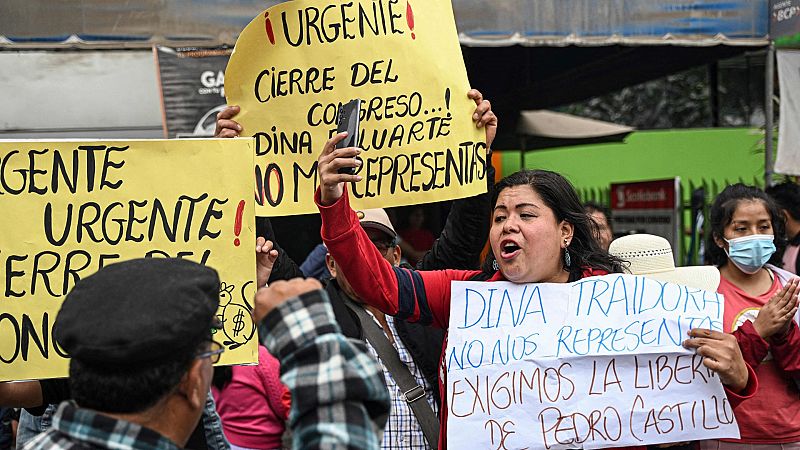 ¡URGENTE!
CIERRE DEL
CONGRESO...!
DINA BOLUARTE
NO ME REPRESENTAS
URGENTE
URGENTE!
CIERRE DEL
$
DINA TRAIDORA
NO NOS REPRESENTA
EXIGIMOS LA LIBER
DE PEDRO CASTILLO
SCOTIABANK
BCP
GA